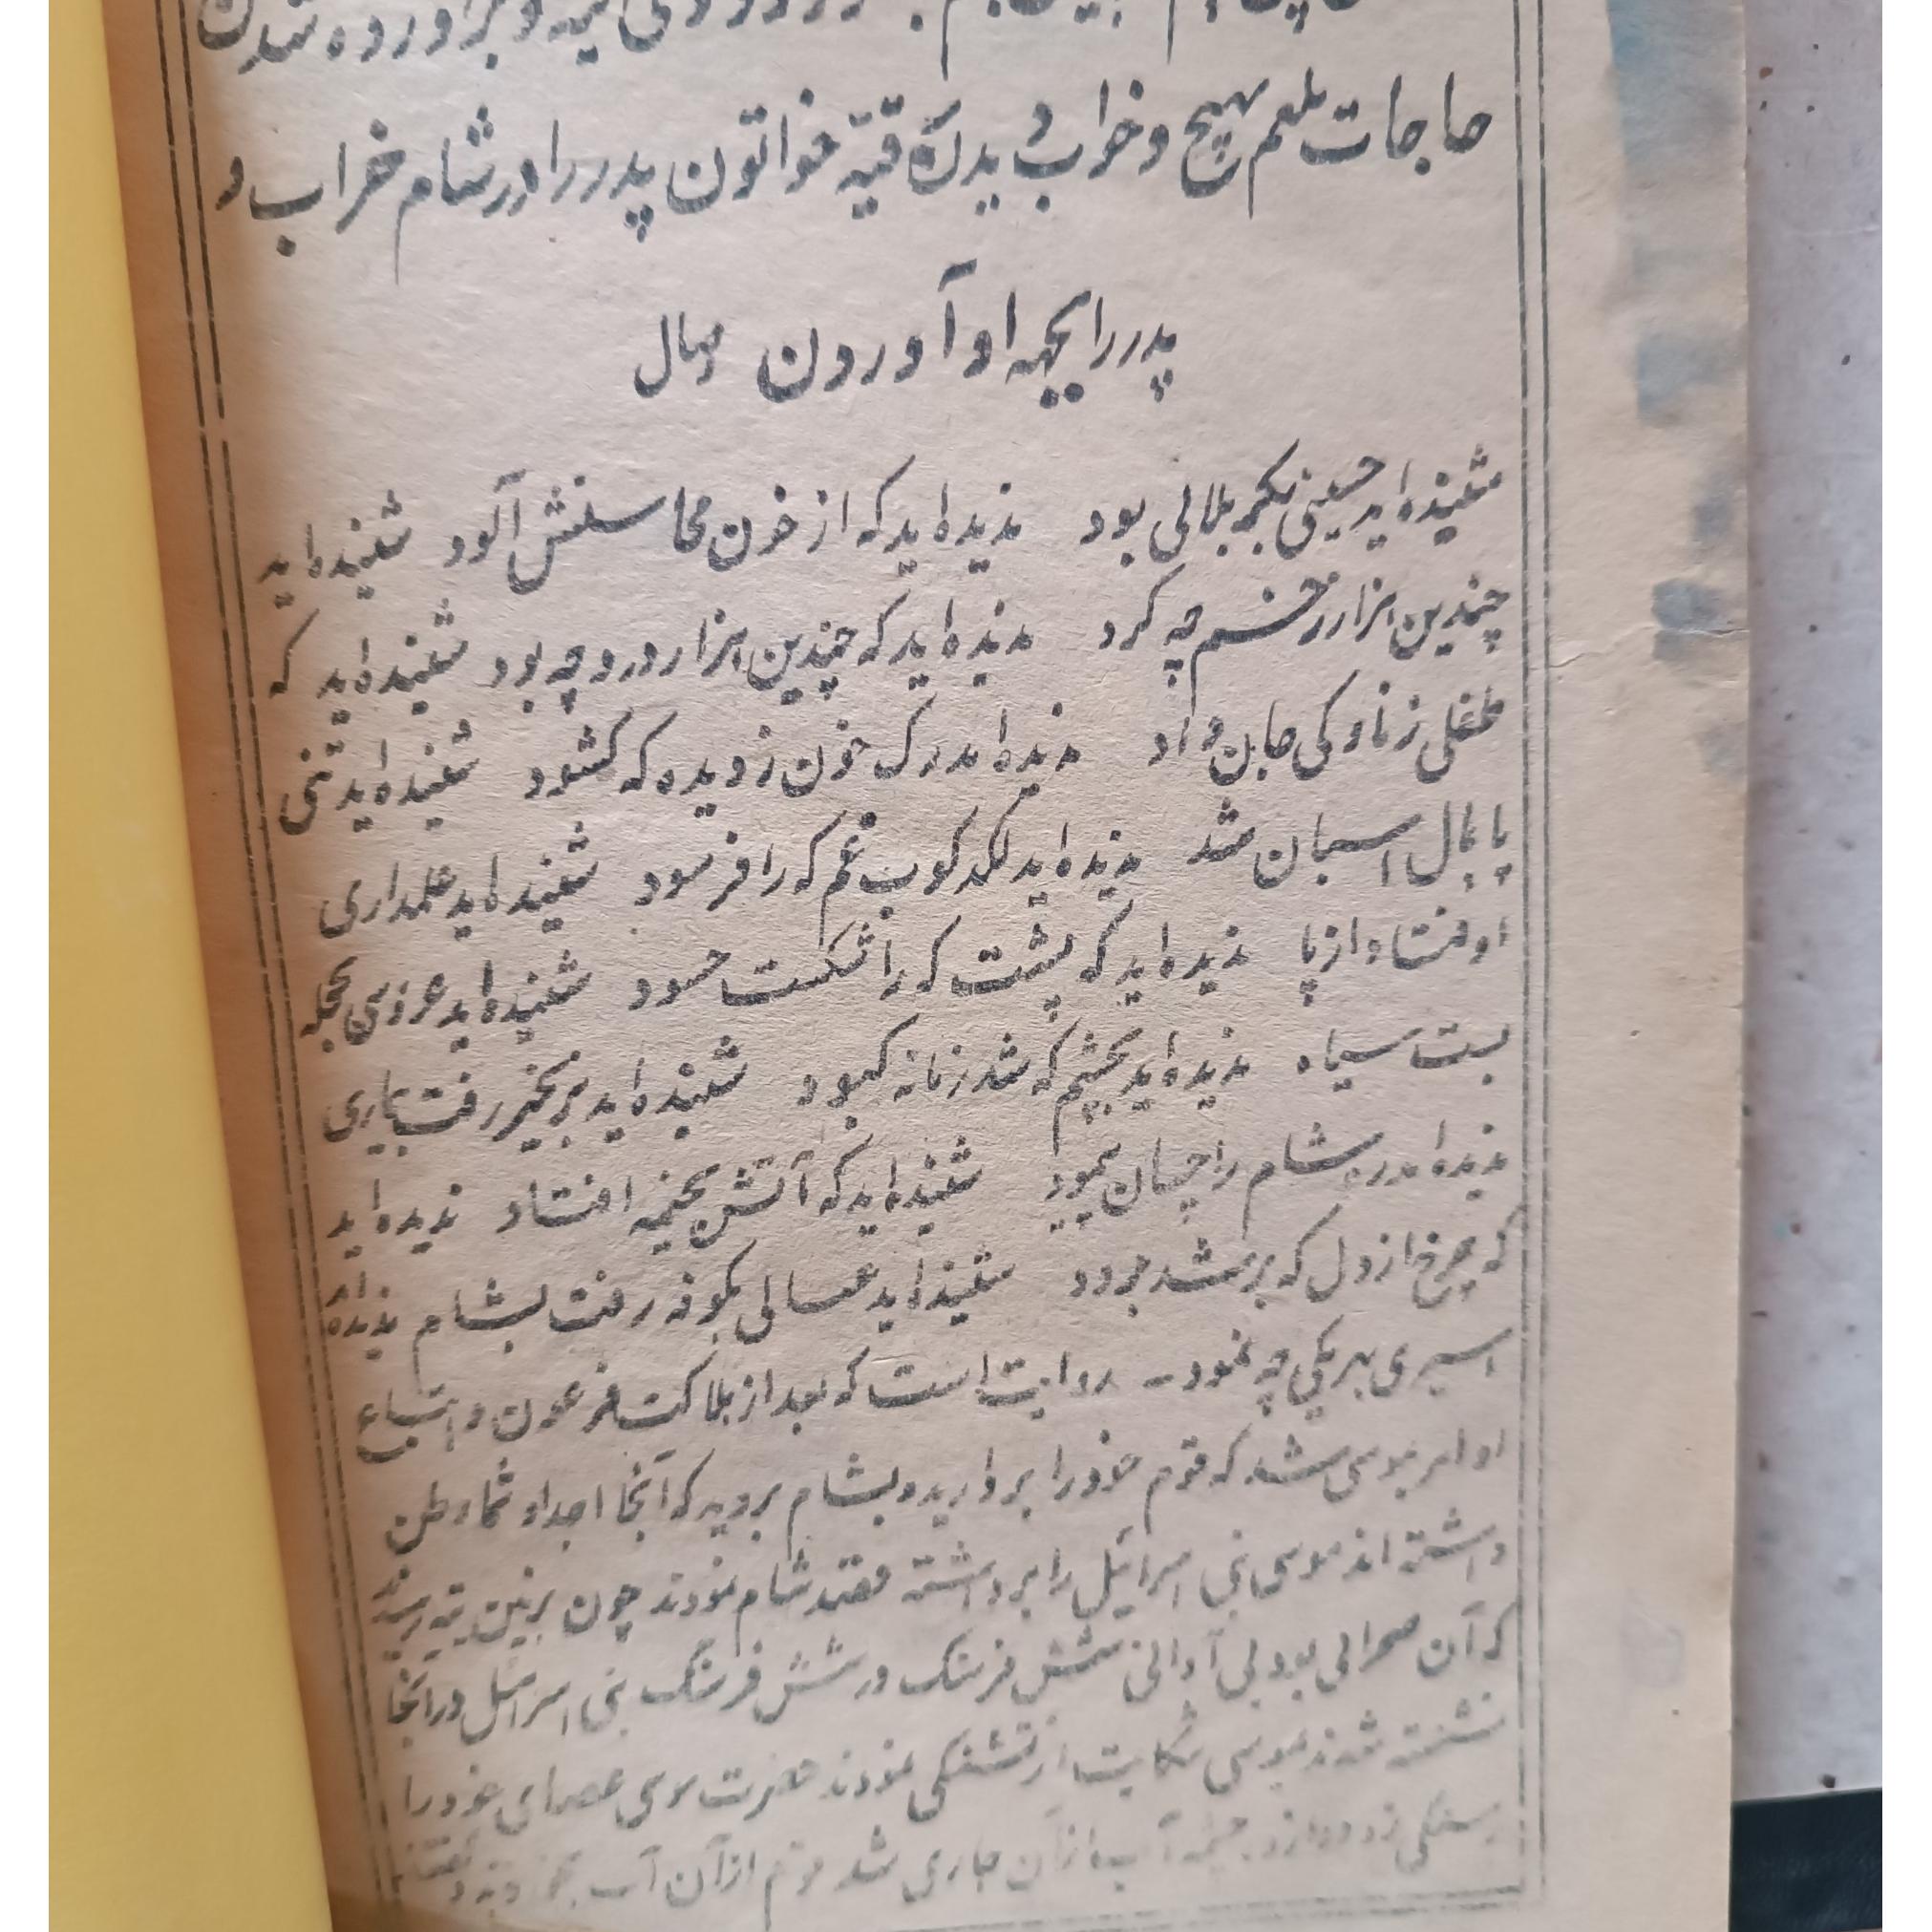 حاجات بلعم هیچ و خواب دیدن رقیّه خواتون پدر را در شام خراب و
پدر را بجهه او آوردن وصال
شنیده‌اید حسینی بکربلائی بود ندیده‌اید که از خون محاسنش آلود شنیده‌اید
چندین هزار زخم چه کرد ندیده‌اید که چندین هزار درد چه بود شنیده‌اید که
طفلی ز ناوکی جان داد ندیده‌اید رگ خون ز دیده که کشود شنیده‌اید تنی
پایمال اسبان شد ندیده‌اید لکدکوب غم که را فرسود شنیده‌اید علمداری
اوفتاد از پا ندیده‌اید که پشت که را شکست حسود شنیده‌اید عروسی بحجله
بست سیاه ندیده‌اید بچشم که شد زمانه کبود شنیده‌اید بزنجیر رفت بیماری
ندیده‌اید ره شام را چسان پیمود شنیده‌اید که آتش بخیمه افتاد ندیده‌اید
که چرخ از دل که بر شد دود شنیده‌اید عیالی بکوفه رفت بشام ندیده‌اید
اسیری بهر یکی چه نمود ـ روایت است که بعد از هلاکت فرعون و اتباع
او امر بموسی شد که قوم خود را بردارید و بشام بروید که آنجا اجداد شما وطن
داشته‌اند موسی بنی اسرائیل را برداشته قصد شام نمودند چون بزمین تیه رسیدند
که آن صحرائی بود بی آدانی شش فرسنک در شش فرسنک بنی اسرائیل در آنجا
تشنه شدند بموسی شکایت از تشنگی نمودند حضرت موسی عصای خود را
بسنگی زد دوازده چشمه آب از آن جاری شد قوم از آن آب